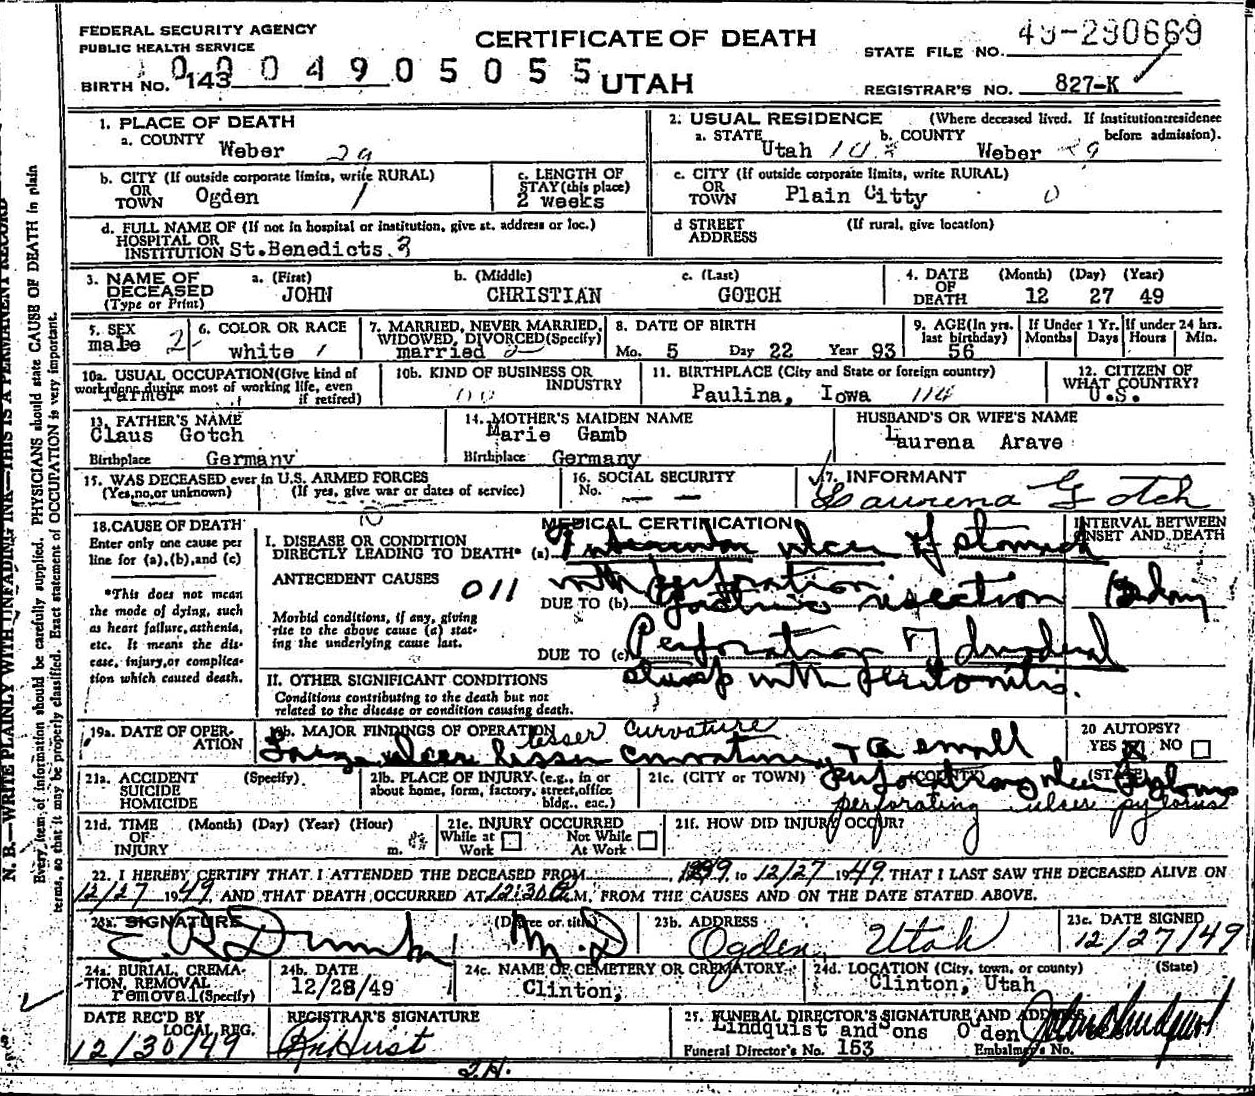 FEDERAL SECURITY AGENCY
PUBLIC HEALTH SERVICE
CERTIFICATE OF DEATH
UTAH
STATE FILE NO. 49-290669
BIRTH NO. 143
0004905055
REGISTRAR'S NO. 827-K
1. PLACE OF DEATH
a. COUNTY Weber 29
2. USUAL RESIDENCE (Where deceased lived. If institution:residence before admission).
a. STATE Utah b. COUNTY Weber 29
b. CITY (If outside corporate limits, write RURAL)
OR
TOWN Ogden 1
c. LENGTH OF
STAY (this place)
2 weeks
c. CITY (If outside corporate limits, write RURAL)
OR
TOWN Plain Citty 0
d. FULL NAME OF (If not in hospital or institution, give st. address or loc.)
HOSPITAL OR
INSTITUTION St.Benedicts 3
d STREET (If rural, give location)
ADDRESS
3. NAME OF DECEASED (Type or Print)
a. (First) JOHN
b. (Middle) CHRISTIAN
c. (Last) GOTCH
4. DATE OF DEATH (Month) (Day) (Year)
12 27 49
5. SEX male 2
6. COLOR OR RACE white 1
7. MARRIED, NEVER MARRIED, WIDOWED, DIVORCED(Specify)
married 2
8. DATE OF BIRTH
Mo. 5 Day 22 Year 93
9. AGE(In yrs. last birthday) 56
If Under 1 Yr. Months Days
If under 24 hrs. Hours Min.
10a. USUAL OCCUPATION(Give kind of work done during most of working life, even if retired)
farmer
10b. KIND OF BUSINESS OR INDUSTRY
11. BIRTHPLACE (City and State or foreign country)
Paulina, Iowa 114
12. CITIZEN OF WHAT COUNTRY?
U.S.
13. FATHER'S NAME
Claus Gotch
Birthplace Germany
14. MOTHER'S MAIDEN NAME
Marie Gamb
Birthplace Germany
HUSBAND'S OR WIFE'S NAME
Laurena Arave
15. WAS DECEASED ever in U.S. ARMED FORCES
(Yes,no,or unknown) (If yes, give war or dates of service)
16. SOCIAL SECURITY
No. — —
17. INFORMANT
Laurena Gotch
18. CAUSE OF DEATH
Enter only one cause per line for (a),(b),and (c)
*This does not mean the mode of dying, such as heart failure, asthenia, etc. It means the disease, injury, or complication which caused death.
MEDICAL CERTIFICATION
INTERVAL BETWEEN ONSET AND DEATH
I. DISEASE OR CONDITION DIRECTLY LEADING TO DEATH* (a) ulcer of stomach
with perforation
ANTECEDENT CAUSES 011
Morbid conditions, if any, giving rise to the above cause (a) stating the underlying cause last.
DUE TO (b) Gastric resection day
DUE TO (c) Perforation of duodenal
stump with peritonitis.
II. OTHER SIGNIFICANT CONDITIONS
Conditions contributing to the death but not related to the disease or condition causing death.
19a. DATE OF OPERATION
19b. MAJOR FINDINGS OF OPERATION lesser curvature
Large ulcer lesser curvature, + a small
perforating ulcer pylorus
perforating ulcer pylorus
20 AUTOPSY?
YES NO
21a. ACCIDENT SUICIDE HOMICIDE (Specify)
21b. PLACE OF INJURY (e.g., in or about home, form, factory, street,office bldg., eac.)
21c. (CITY or TOWN) (COUNTY) (STATE)
21d. TIME OF INJURY (Month) (Day) (Year) (Hour) m.
21e. INJURY OCCURRED
While at Work Not While At Work
21f. HOW DID INJURY OCCUR?
22. I HEREBY CERTIFY THAT I ATTENDED THE DECEASED FROM , to 12/27 1949 THAT I LAST SAW THE DECEASED ALIVE ON
12/27 1949 AND THAT DEATH OCCURRED AT 12:30 M. FROM THE CAUSES AND ON THE DATE STATED ABOVE.
23a. SIGNATURE (Degree or title) M.D
23b. ADDRESS Ogden, Utah
23c. DATE SIGNED 12/27/49
24a. BURIAL, CREMATION, REMOVAL (Specify)
removal
24b. DATE
12/28/49
24c. NAME OF CEMETERY OR CREMATORY
Clinton,
24d. LOCATION (City, town, or county) (State)
Clinton, Utah
DATE REC'D BY LOCAL REG.
12/30/49
REGISTRAR'S SIGNATURE
25. FUNERAL DIRECTOR'S SIGNATURE AND ADDRESS
Lindquist and Sons Ogden
Funeral Director's No. 153 Embalmer's No.
N. B.—WRITE PLAINLY WITH UNFADING INK—THIS IS A PERMANENT RECORD
Every item of information should be carefully supplied. PHYSICIANS should state CAUSE OF DEATH in plain
terms, so that it may be properly classified. Exact statement of OCCUPATION is very important.